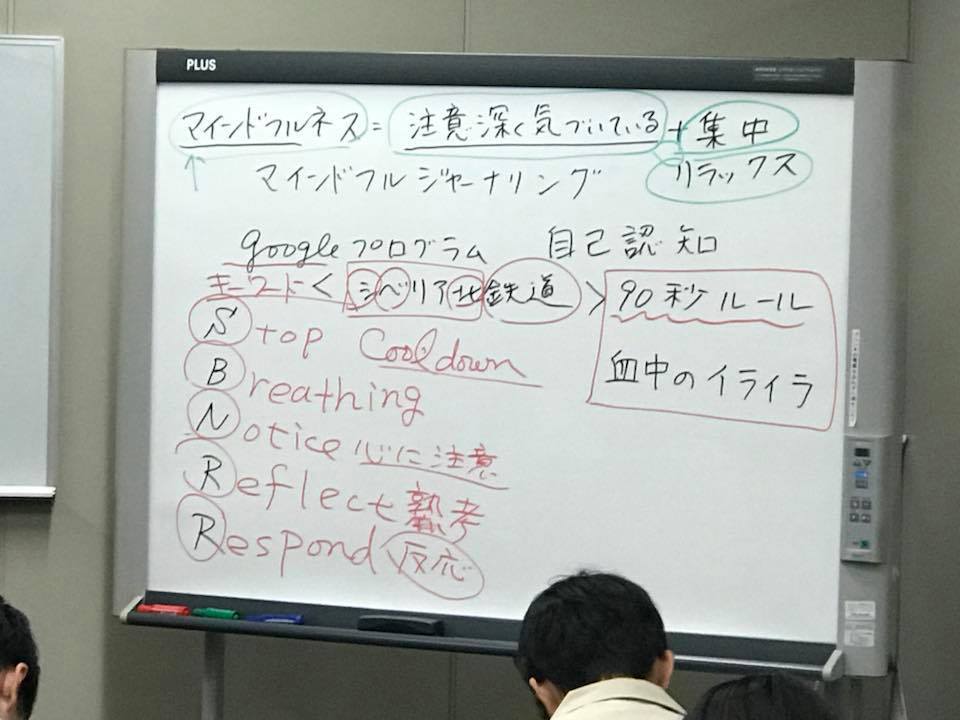 PLUS
マインドフルネス = 注意深く気づいている + 集中
リラックス
マインドフルジャーナリング
googleプログラム 自己認知
キーワード < シベリア北鉄道 > 90秒ルール
血中のイライラ
Stop Cool down
Breathing
Notice 心に注意
Reflect 熟考
Respond 反応